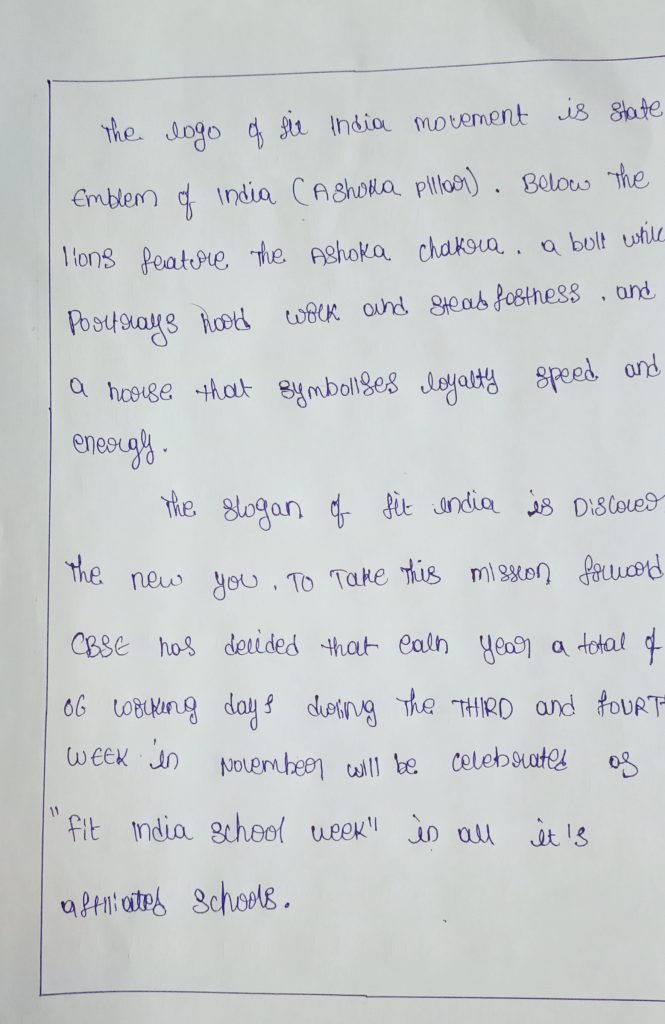 The logo of fit India movement is state
Emblem of India (Ashoka pillar). Below the
lions feature the Ashoka chakra. a bull while
Portrays hard work and steadfastness, and
a horse that symbolises loyalty speed and
energy.
The slogan of fit india is Discover
the new you. To Take this mission forward
CBSE has decided that each year a total of
06 working days during the THIRD and FOURT
WEEK in November will be celebrated as
"Fit India school week" in all it's
affiliated schools.